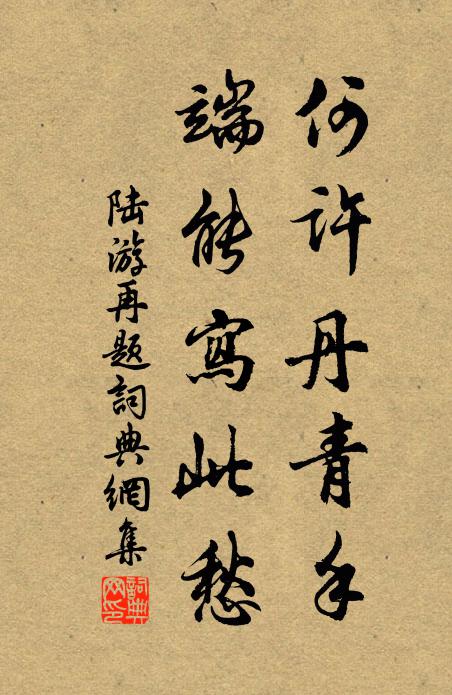 何许丹青手
端能寫此愁
陆游再题詞典網集
詞典网印